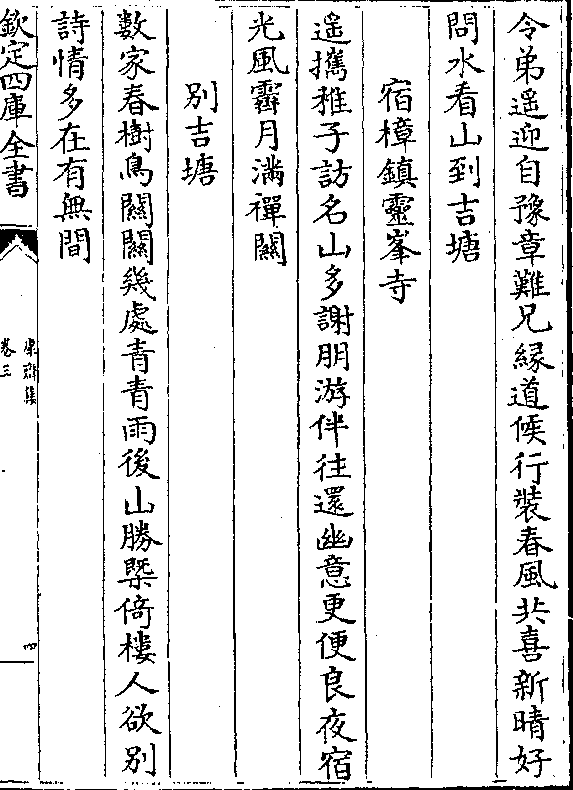 令弟遥迎自豫章難兄縁道候行裝春風共喜新晴好
問水看山到吉塘
宿樟鎮靈峯寺
遥攜稚子訪名山多謝朋游伴往還幽意更便良夜宿
光風霽月滿禪關
别吉塘
數家春樹鳥關關幾處青青雨後山勝槩倚樓人欲别
詩情多在有無間
欽定四庫全書
康齋集
卷三
四